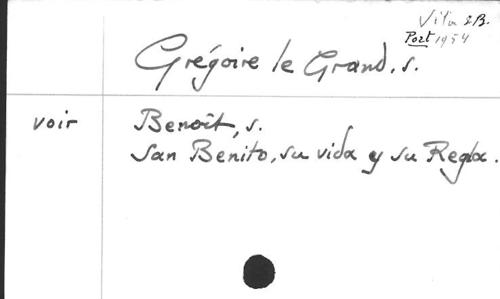 Vita s B.
Port 1954
Grégoire le Grand, s.
voir Benoît, s.
San Benito, su vida y su Regla.